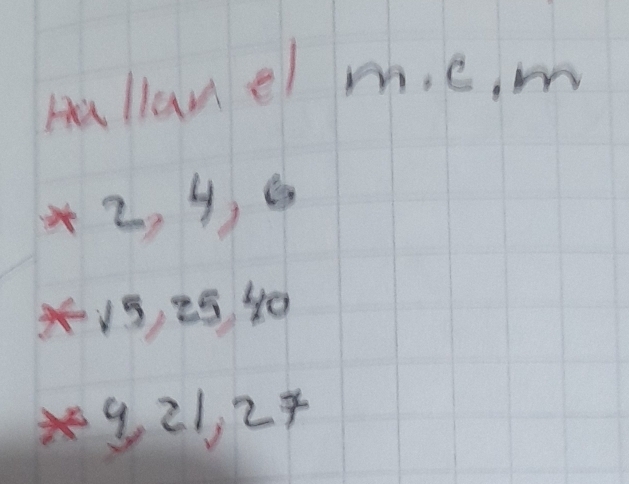 Hallar el m.c.m
* 2, 4, 6
* 15, 25, 40
* 9, 21, 27